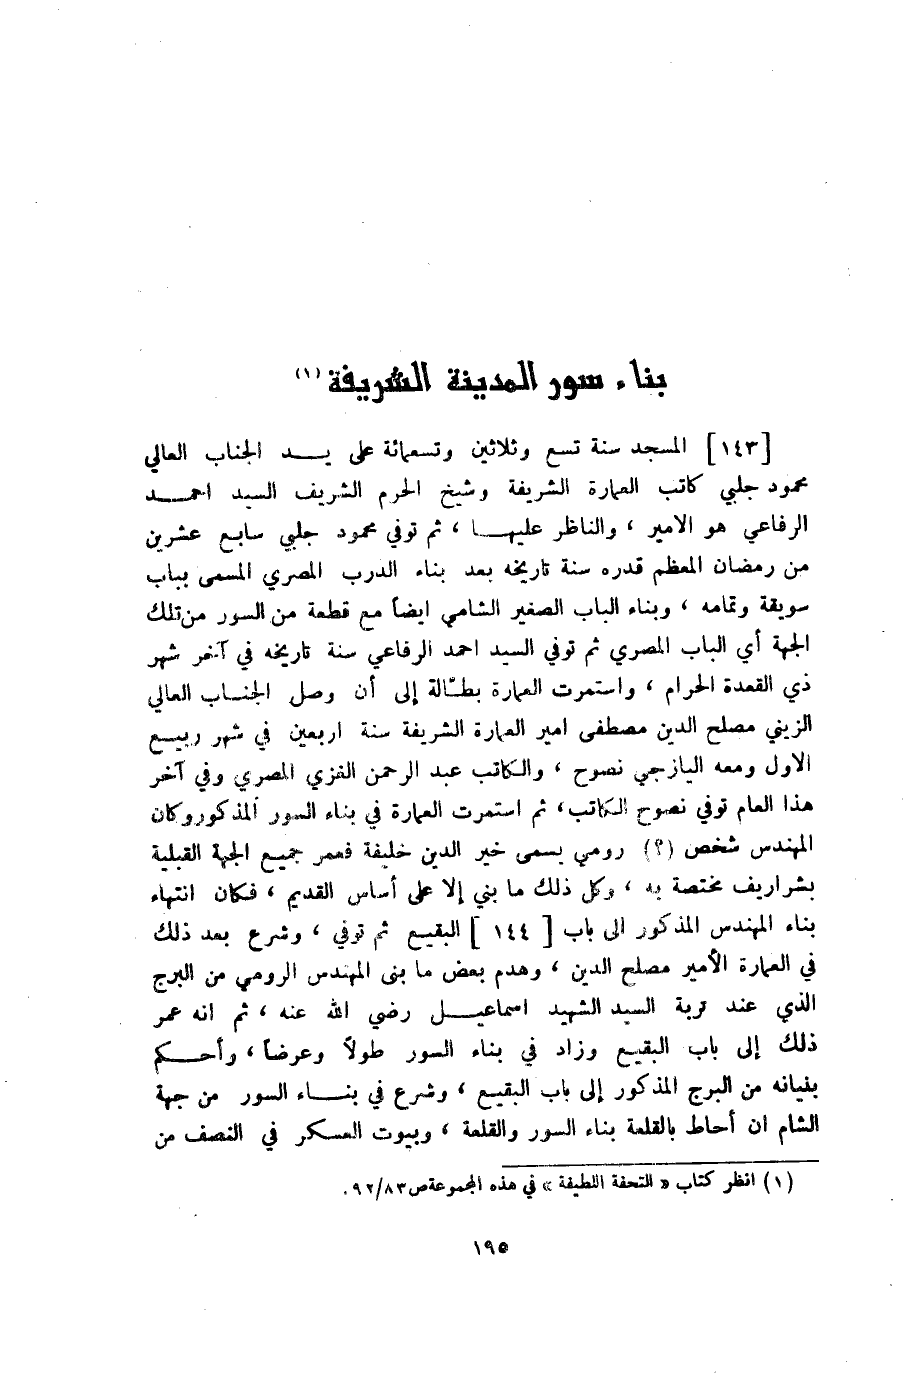 بناء سور المدينة الشريفة (١)
[١٤٣] المسجد سنة تسع وثلاثين وتسعمائة على يـــد الجناب العالي
محمود جلبي كاتب العمارة الشريفة وشيخ الحرم الشريف السيد احمـــد
الرفاعي هو الامير ، والناظر عليهـــا ، ثم توفي محمود جلبي سابع عشرين
من رمضان المعظم قدره سنة تاريخه بعد بناء الدرب المصري المسمى بباب
سويقة وتمامه ، وبناء الباب الصغير الشامي ايضاً مع قطعة من السور من تلك
الجهة أي الباب المصري ثم توفي السيد احمد الرفاعي سنة تاريخه في آخر شهر
ذي القعدة الحرام ، واستمرت العمارة بطّالة إلى أن وصل الجنــاب العالي
الزيني مصلح الدين مصطفى امير العمارة الشريفة سنة اربعين في شهر ربيـــع
الاول ومعه اليازجي نصوح ، والكاتب عبد الرحمن الغزي المصري وفي آخر
هذا العام توفي نصوح الكاتب، ثم استمرت العمارة في بناء السور المذكور وكان
المهندس شخص (؟) رومي يسمى خير الدين خليفة فعمر جميع الجهة القبلية
بشراريف مختصة به ، وكل ذلك ما بني إلا على أساس القديم ، فكان انتهاء
بناء المهندس المذكور الى باب [ ١٤٤ ] البقيع ثم توفي ، وشرع بعد ذلك
في العمارة الأمير مصلح الدين ، وهدم بعض ما بنى المهندس الرومي من البرج
الذي عند تربة السيد الشهيد اسماعيـــل رضي الله عنه ، ثم انه عمر
ذلك إلى باب البقيع وزاد في بناء السور طولاً وعرضاً ، وأحـــكم
بنيانه من البرج المذكور إلى باب البقيع ، وشرع في بنـــاء السور من جهة
الشام ان أحاط بالقلعة بناء السور والقلعة ، وبيوت العسكر في النصف من
(١) انظر كتاب « التحفة اللطيفة » في هذه المجموعة ص ٩٢/٨٣.
١٩٥